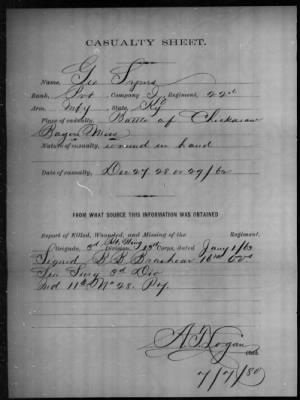 CASUALTY SHEET.
Name, Geo
Rank, Pvt Company Regiment, 22d
Arm, Infy State, Ky
Place of casualty, Battle of Chickasaw
Bayou Miss
Nature of casualty, wound in hand
Date of casualty, Dec 27. 28 or 29/62
FROM WHAT SOURCE THIS INFORMATION WAS OBTAINED
Report of Killed, Wounded, and Missing of the Regiment,
Brigade, 3d Division, 13 Corps, dated Jany 1/63
Signed B B Brashear
Surg 3d Div
A. Logan
Clerk.
7/7/80